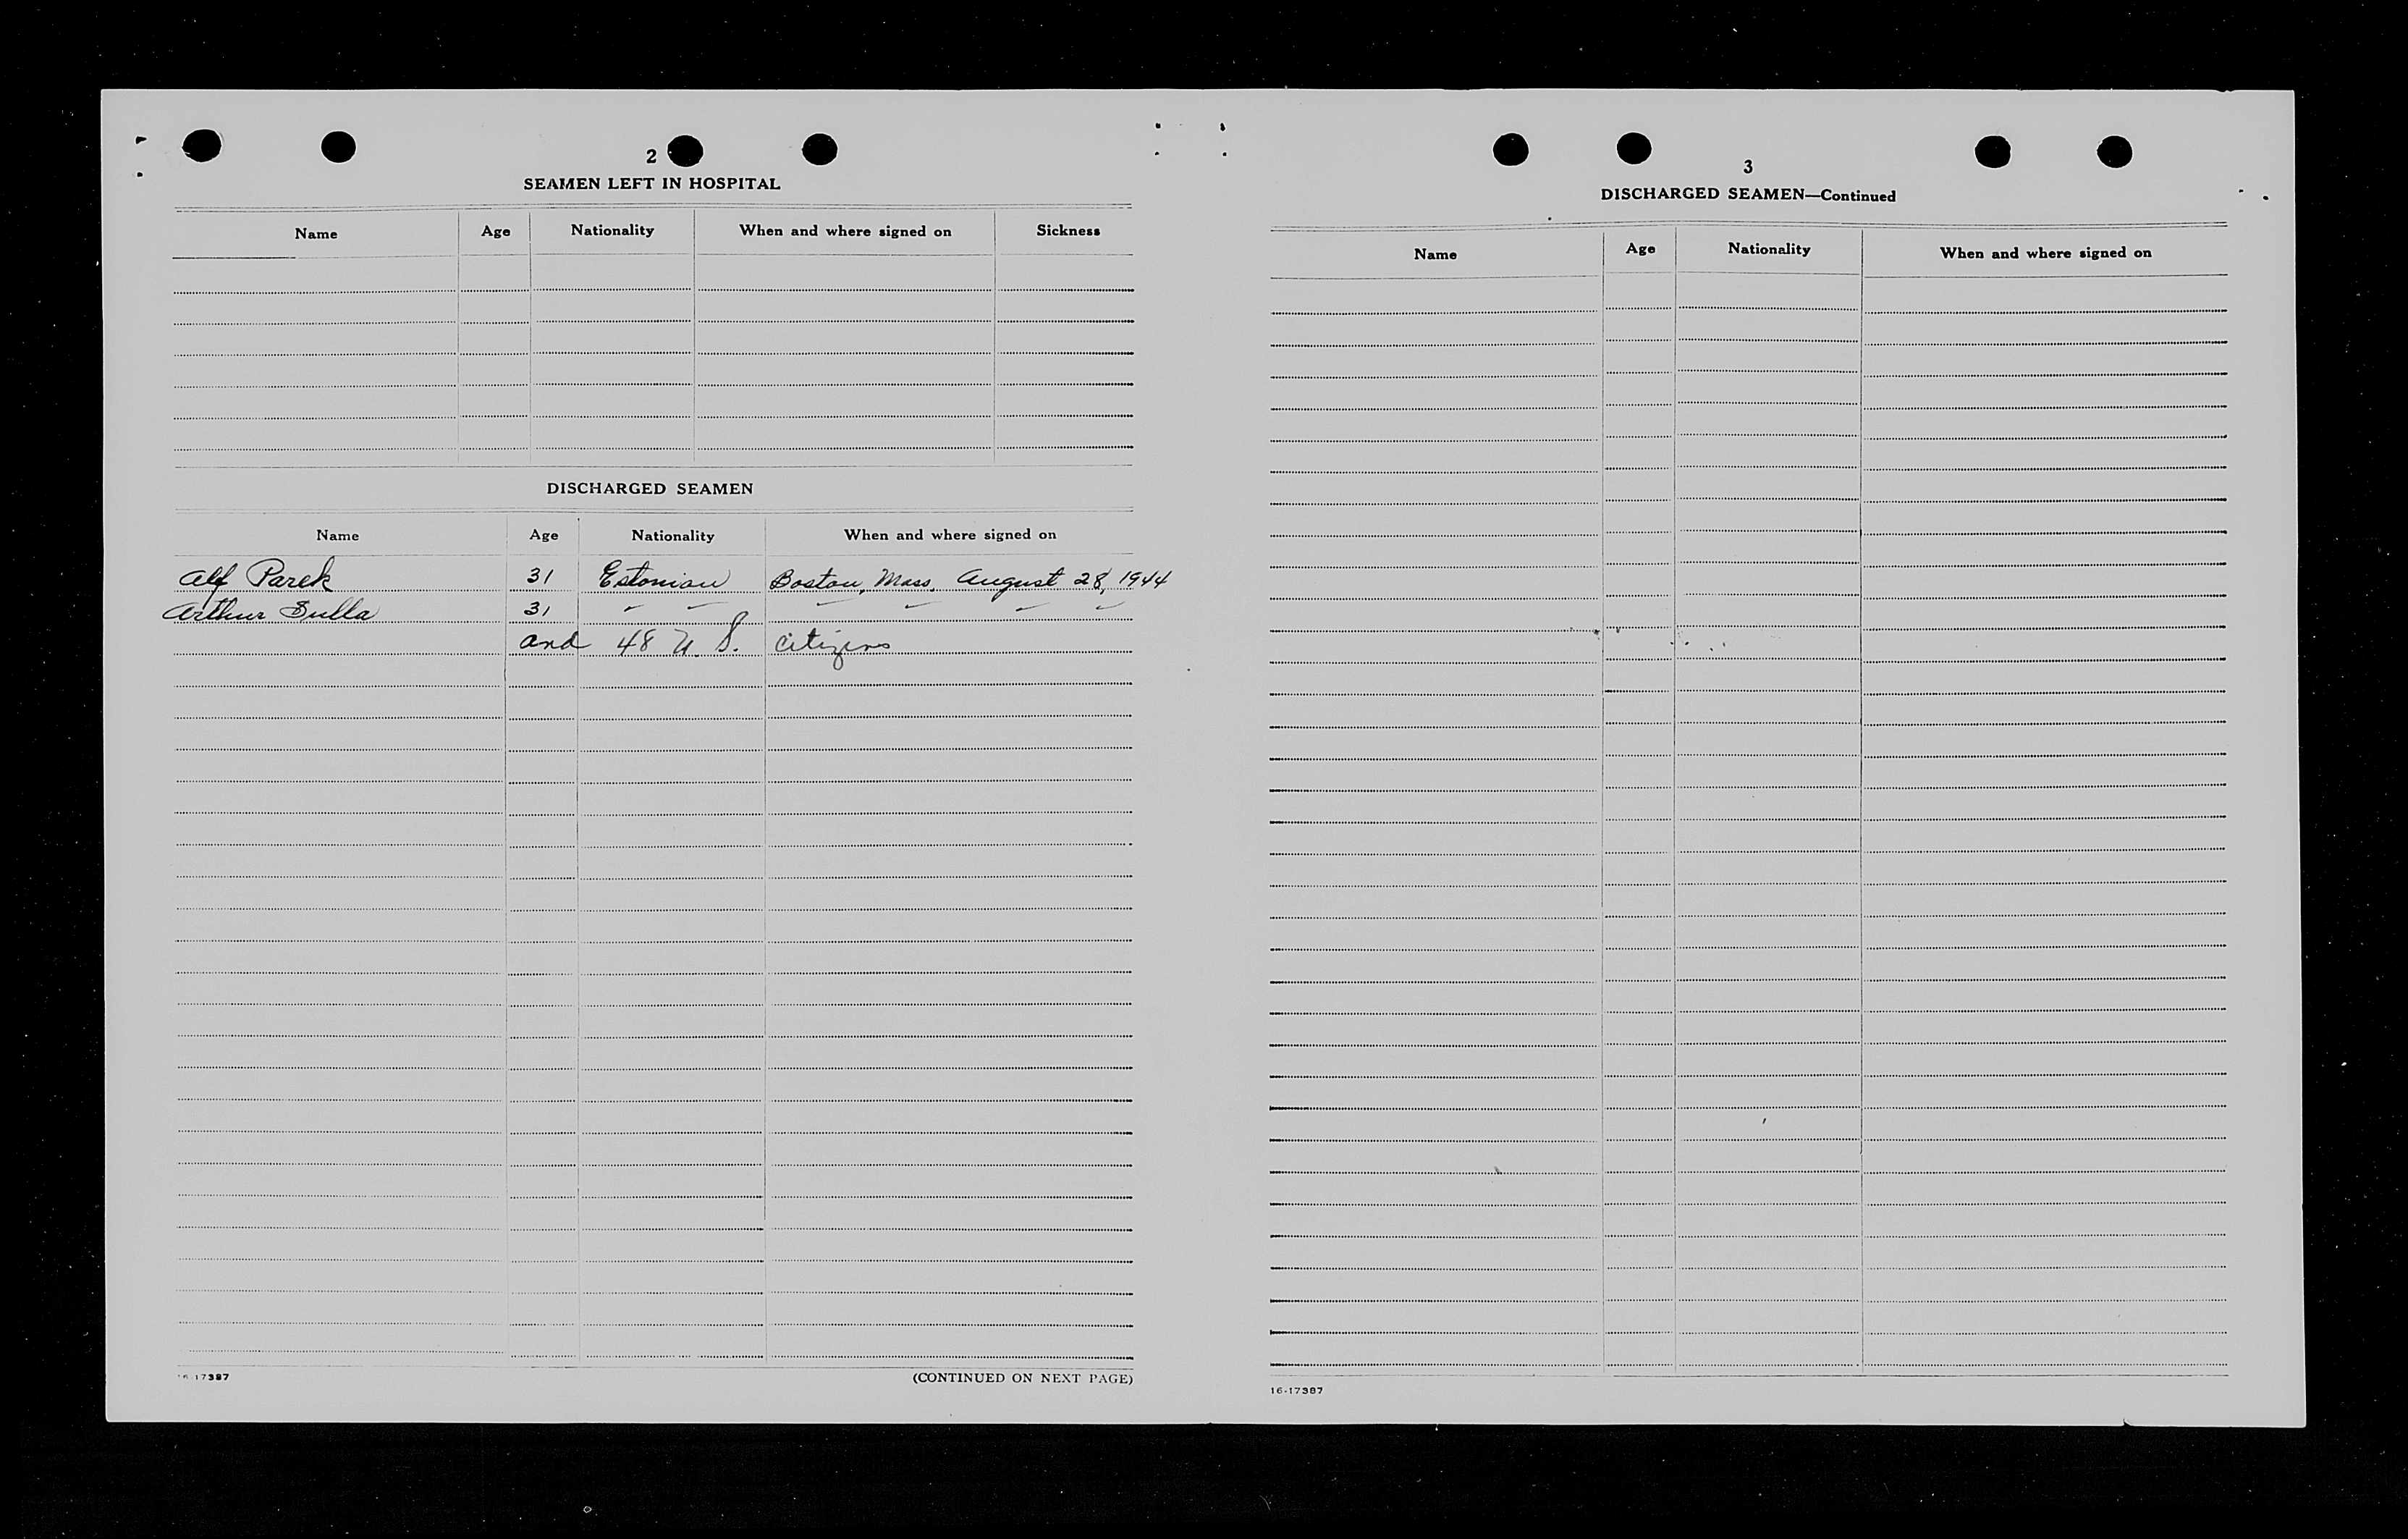 2
SEAMEN LEFT IN HOSPITAL
Name Age Nationality When and where signed on Sickness
DISCHARGED SEAMEN
Name Age Nationality When and where signed on
Alf Parek 31 Estonian Boston, Mass. August 28, 1944
Arthur Sulla 31 " " " " " "
and 48 U. S. citizens
16-17387
(CONTINUED ON NEXT PAGE)
3
DISCHARGED SEAMEN—Continued
Name Age Nationality When and where signed on
16-17387